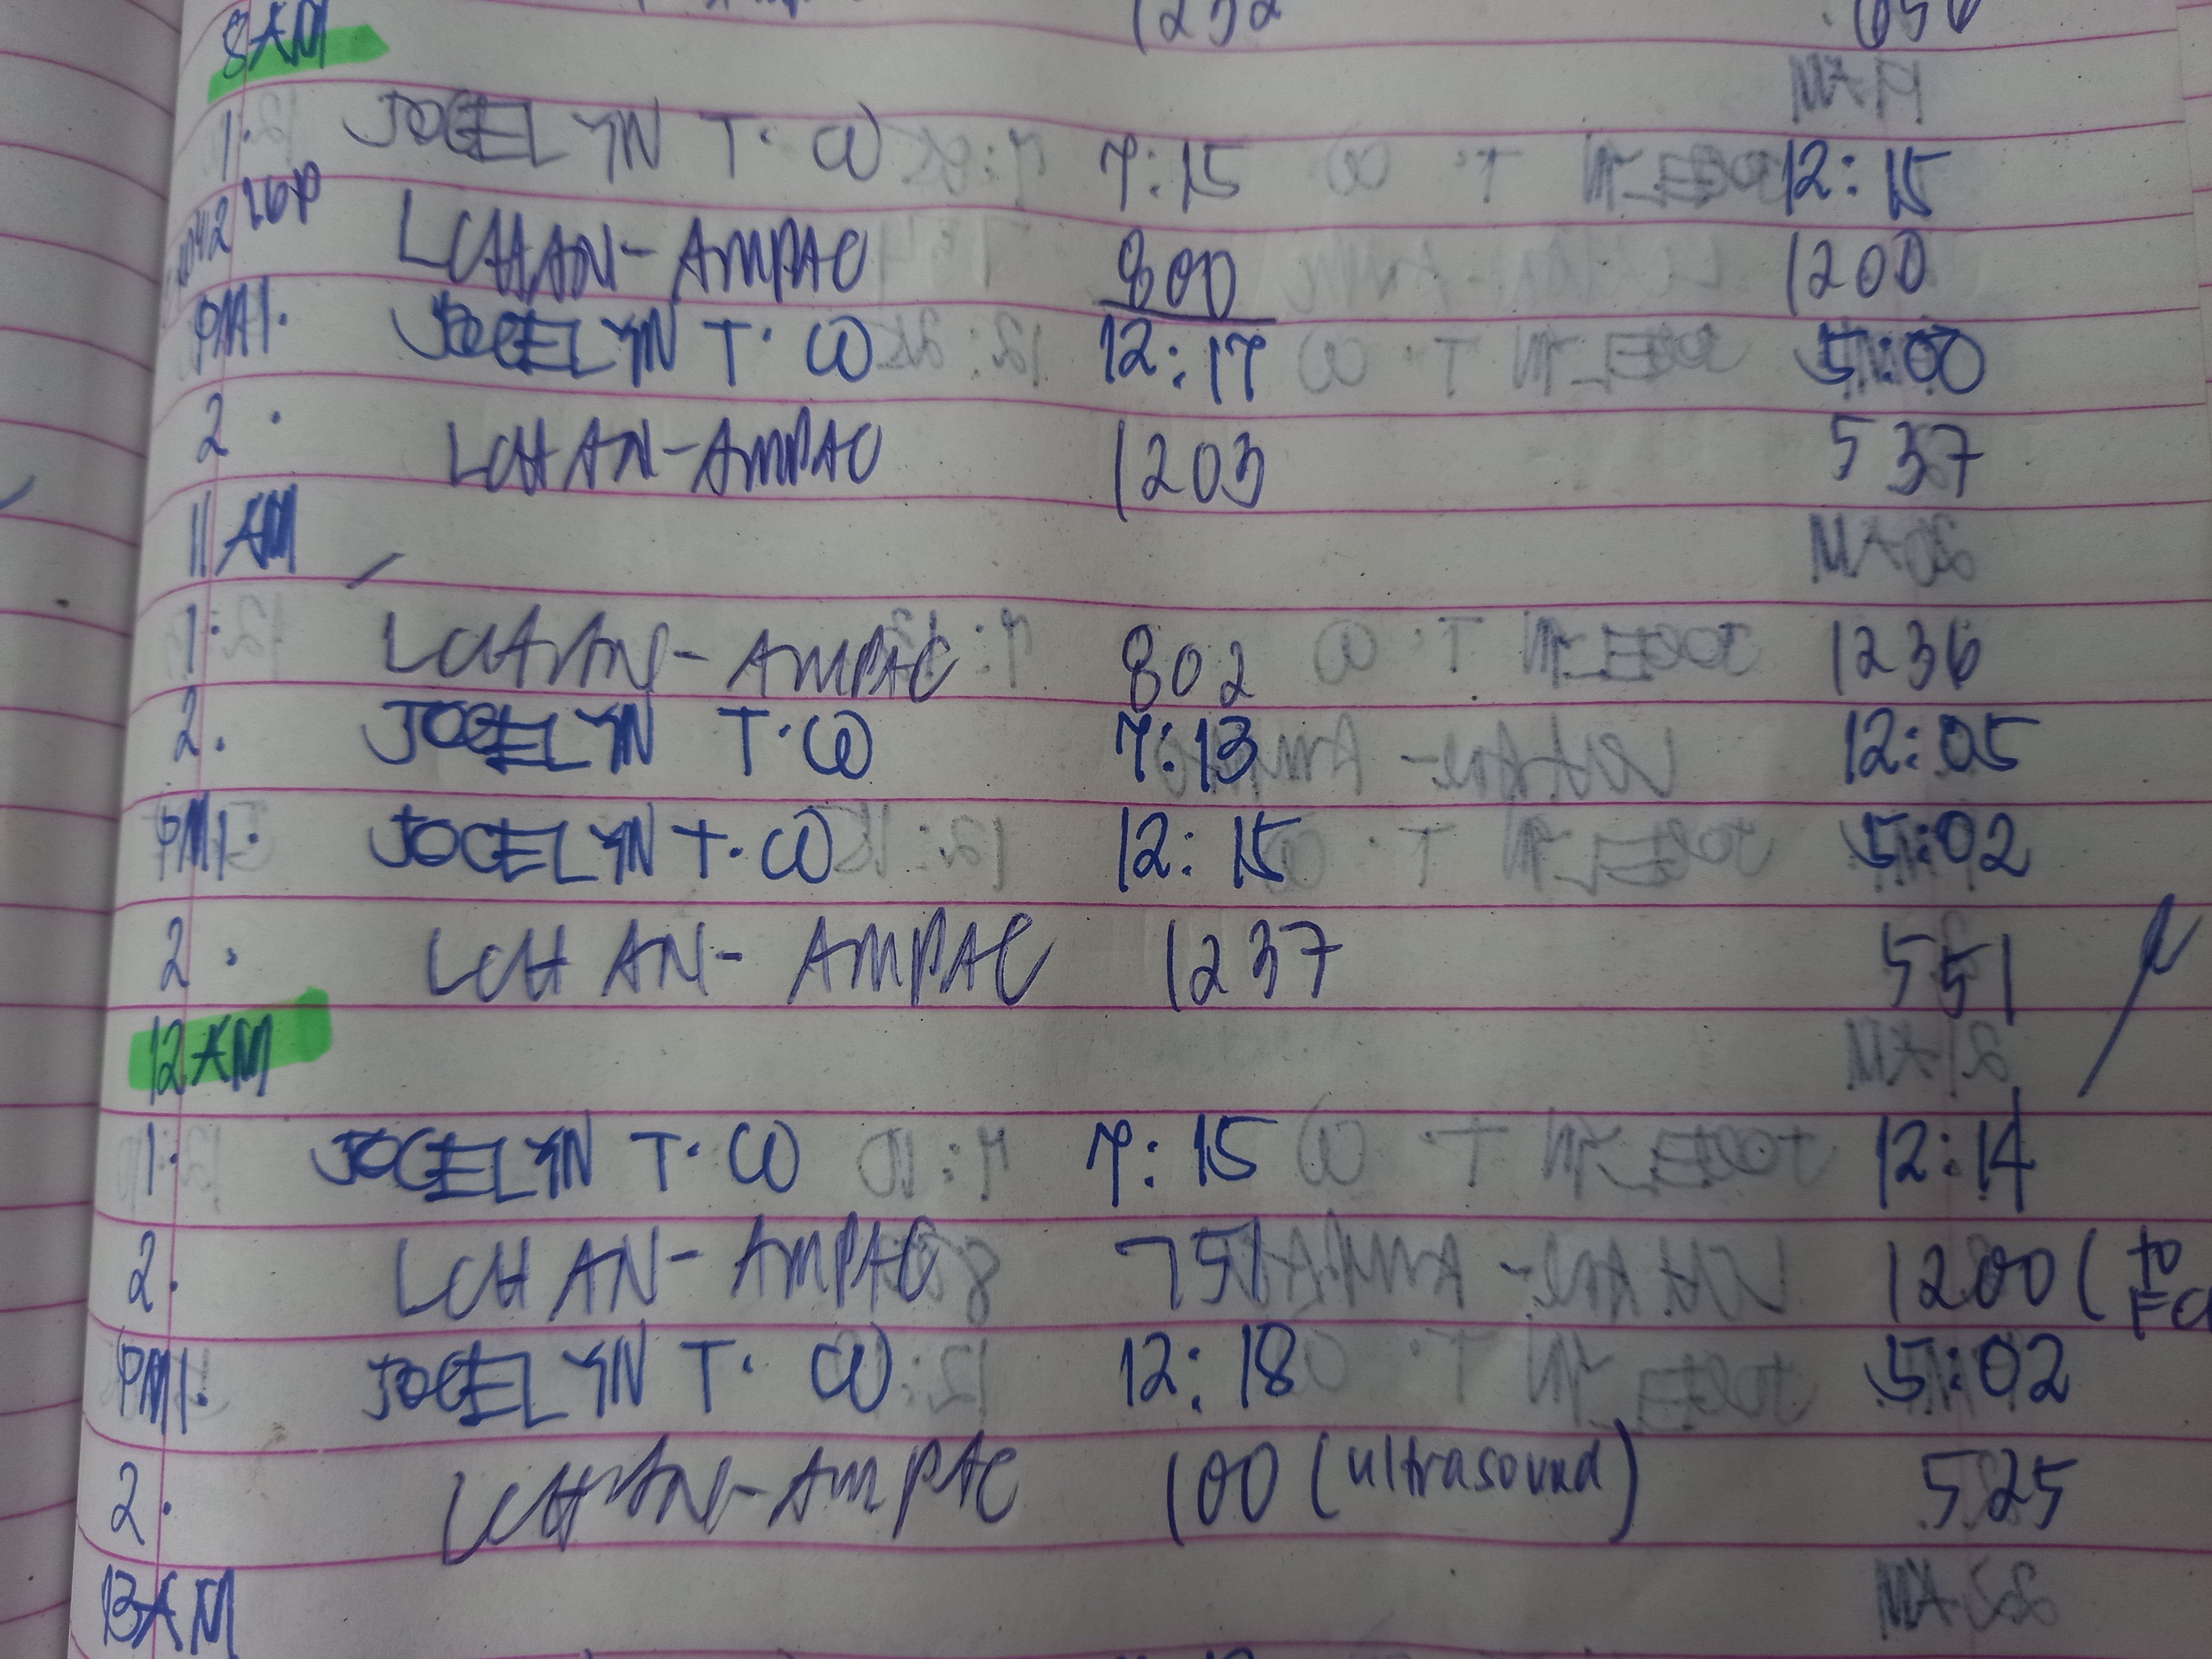 1232
8AM
1. JOCELYN T. CO 7:15 12:15
LCHAN-AMPAC 800 1200
PM1. JOCELYN T. CO 12:17 5:00
2. LCHAN-AMPAC 1203 537
11 AM
1. LCHAN-AMPAC 802 1236
2. JOCELYN T. CO 7:13 12:05
PM1. JOCELYN T. CO 12:15 5:02
2. LCHAN-AMPAC 1237 551
12AM
1. JOCELYN T. CO 7:15 12:14
2. LCHAN-AMPAC 751 1200 (to
PM1. JOCELYN T. CO 12:18 5:02
2. LCHAN-AMPAC 100 (ultrasound) 525
13AM